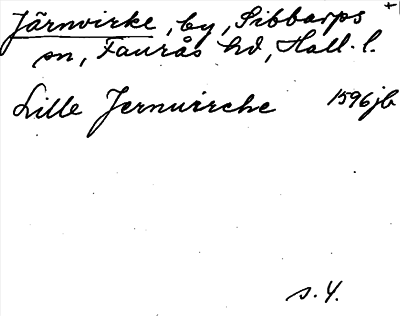 Järnvirke, by, Sibbarps +
sn, Faurås hd, Hall. l.
Lille Jernvirche 1596 jb
s. 4.